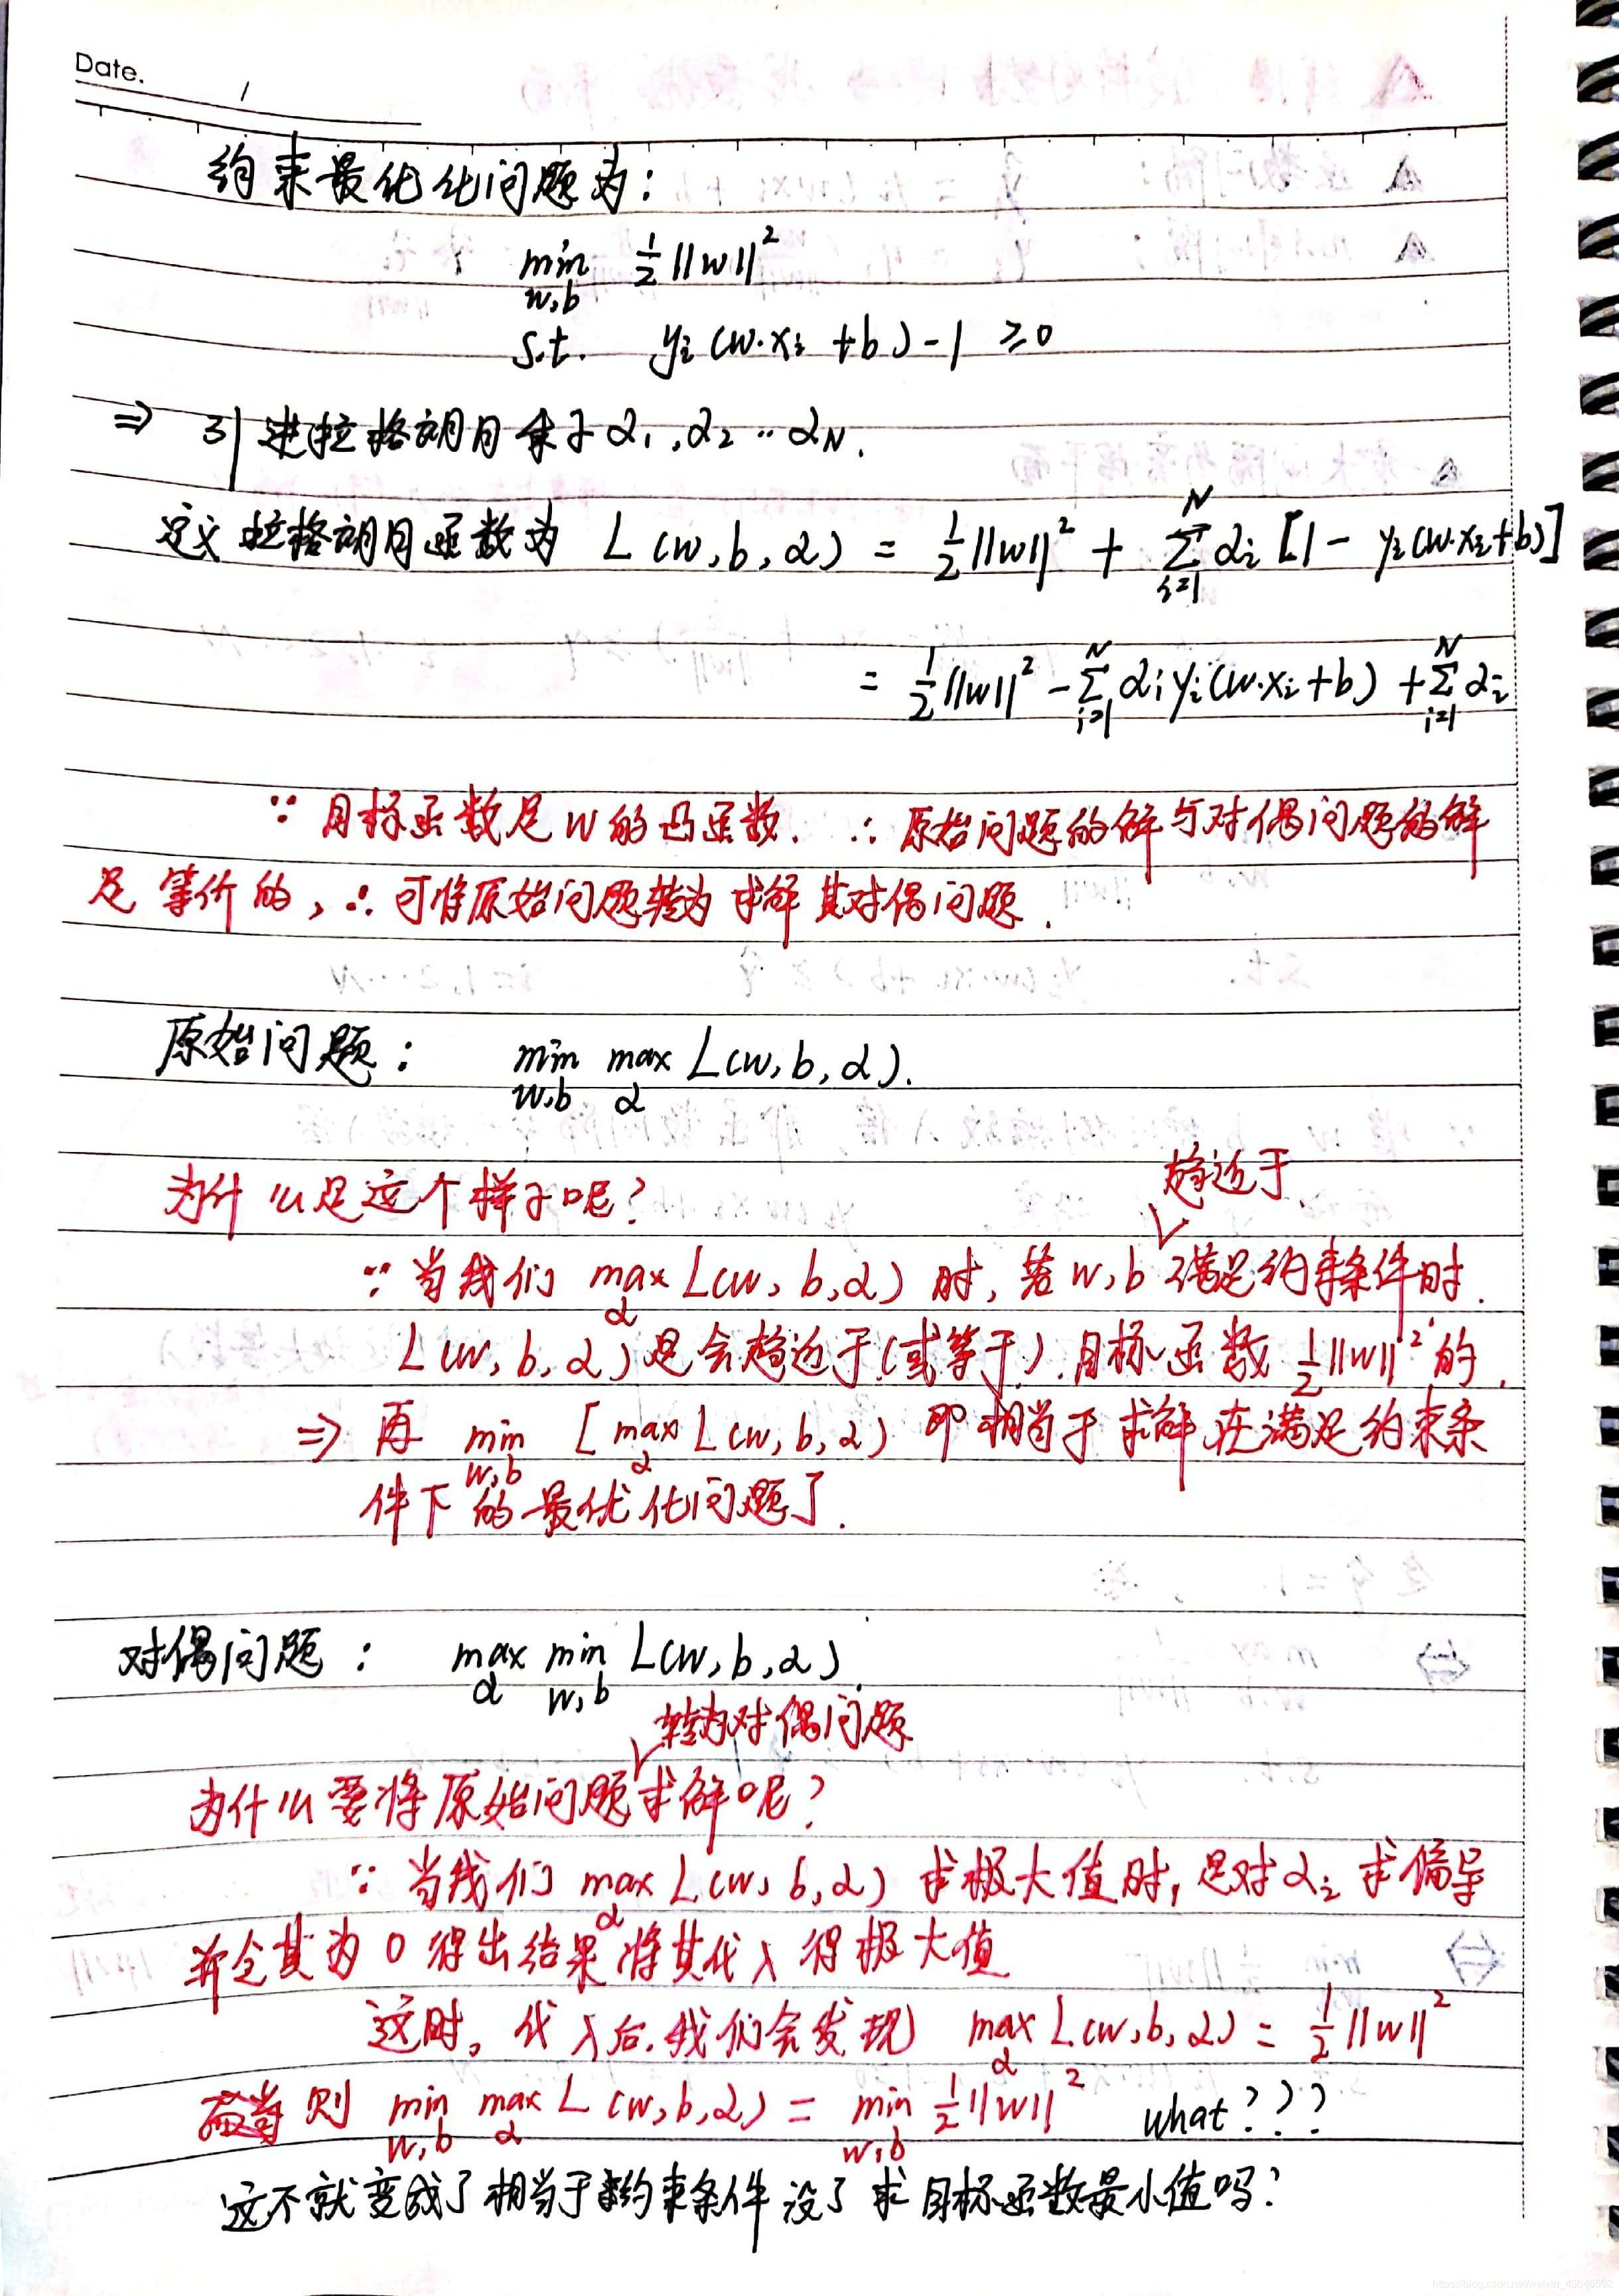 Date. /
约束最优化问题为:
min 1/2 ||w||²
w,b
s.t. yi (w·xi + b) - 1 ≥ 0
⇒ 引进拉格朗日乘子 α1, α2 ·· αN.
定义拉格朗日函数为 L(w, b, α) = 1/2 ||w||² + Σ(i=1→N) αi [1 - yi(w·xi+b)]
= 1/2 ||w||² - Σ(i=1→N) αi yi(w·xi+b) + Σ(i=1→N) αi
∵ 目标函数是 w 的凸函数. ∴ 原始问题的解与对偶问题的解
是等价的, ∴ 可将原始问题转为求解其对偶问题.
原始问题: min max L(w, b, α).
w,b α
为什么是这个样子呢?
趋近于
∵ 当我们 max L(w, b, α) 时, 若 w, b √ 满足约束条件时.
α
L(w, b, α) 是会趋近于(或等于) 目标函数 1/2 ||w||² 的.
⇒ 再 min [ max L(w, b, α) 即相当于求解在满足约束条
w,b α
件下的最优化问题了.
对偶问题: max min L(w, b, α).
α w,b
转为对偶问题
为什么要将原始问题√求解呢?
∵ 当我们 max L(w, b, α) 求极大值时, 是对 αi 求偏导
α
并令其为 0 得出结果将其代入得极大值
这时。代入后. 我们会发现 max L(w, b, α) = 1/2 ||w||²
α
则 min max L(w, b, α) = min 1/2 ||w||² what???
w,b α w,b
这不就变成了相当于约束条件没了求目标函数最小值吗?